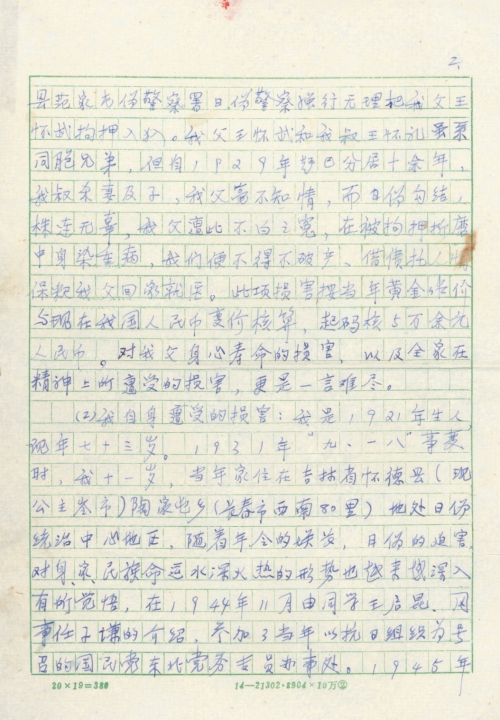 2.
县范家屯伪警察署日伪警察强行无理把我父王
怀武拘押入狱。我父王怀武和我叔王怀礼虽系
同胞兄弟，但自1929年时已分居十余年，
我叔杀妻及子，我父毫不知情，而日伪勾结，
株连无辜，我父遭此不白之冤，在被拘押折磨
中身染重病，我们便不得不破产、借债托人
保释我父回家就医。此项损害按当年黄金涨价
与现在我国人民币变价核算，起码核5万余元
人民币。对我父身心寿命的损害，以及全家在
精神上所遭受的损害，更是一言难尽。
(2)我自身遭受的损害：我是1921年生人，
现年七十三岁。1931年"九、一八"事变
时，我十一岁，当年家住在吉林省怀德县(现
公主岭市)陶家屯乡(长春市西南80里)地处日伪
统治中心地区，随着年令的，日伪的迫害，
对身、家、民族命运水深火热的形势也越来越深入
有所觉悟，在1944年11月由同学王启昆、同
事任子壎的介绍，参加了当年以抗日组织为号
召的国民党东北党务专员办事处。1945年
20×19=380
14—21302·8904×10万